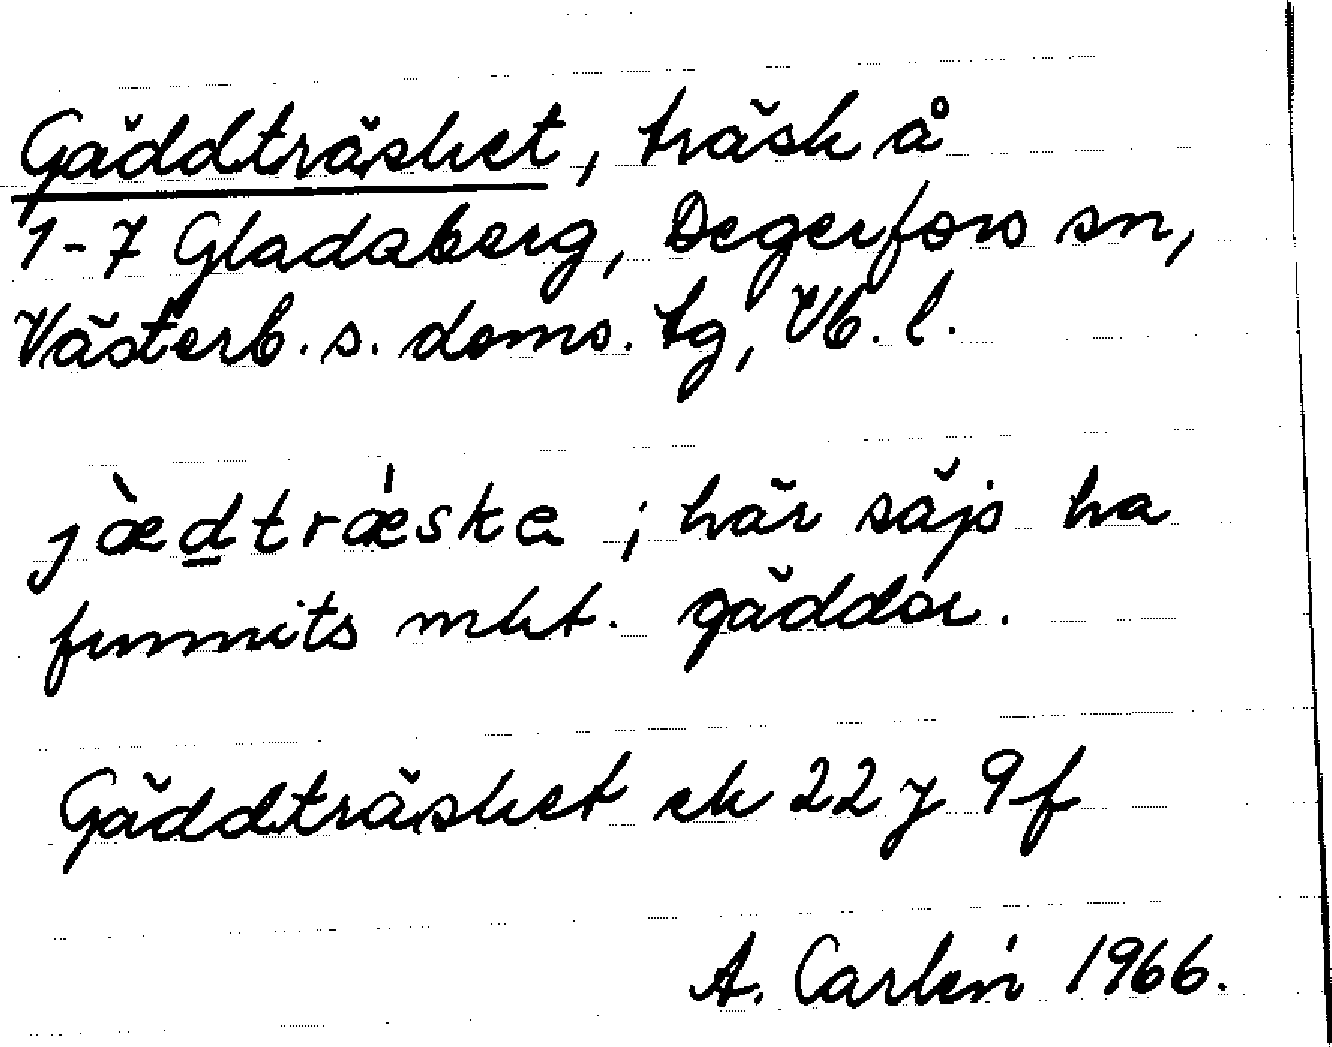 Gäddträsket, träsk å
1-7 Gladaberg, Degerfors sn,
Västerb. s. doms. tg, Vb. l.
jæ̀dtræ̍ske ; här säjs ha
funnits mkt. gäddor.
Gäddträsket ek 22 y 9 f
A. Carlén 1966.